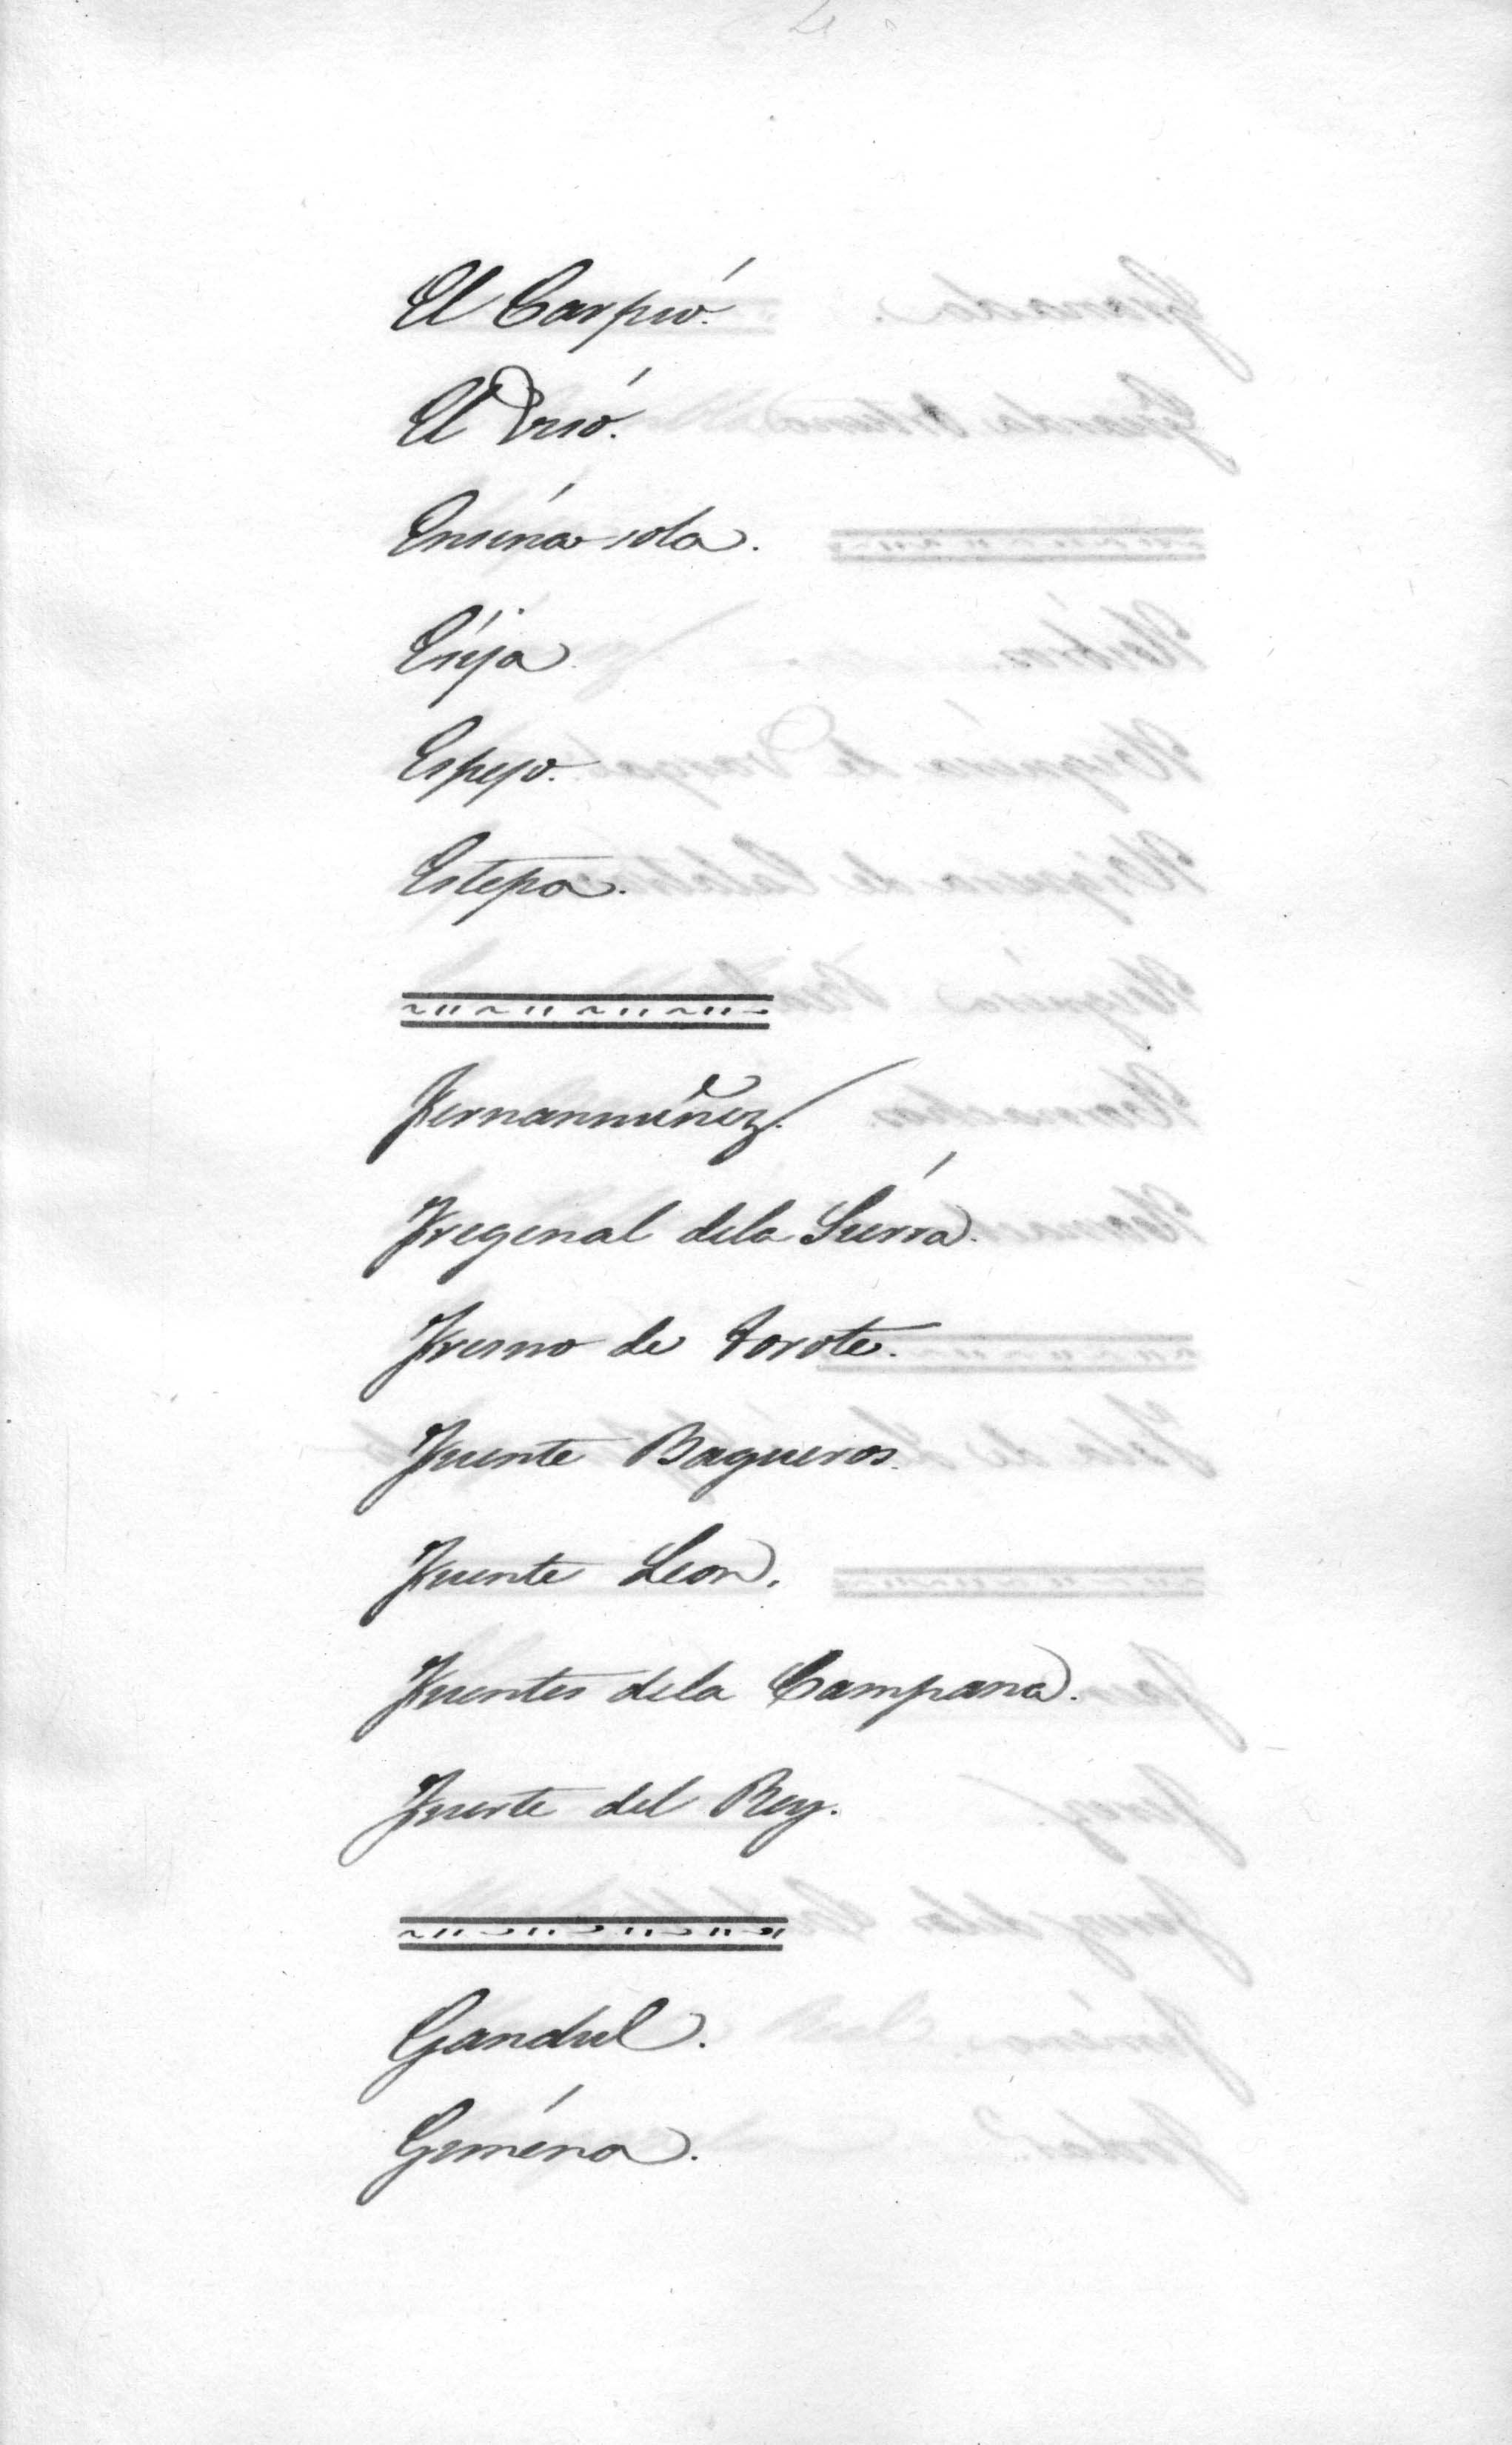 El Carpio.
El Viso.
Ensina sola.
Esija
Espejo.
Estepa.
Fernannuñez.
Fregenal dela Sierra.
Fresno de torote.
Fuente Baqueros.
Fuente Leon.
Fuentes dela Campana.
Fuerte del Rey.
Gandul.
Gimena.